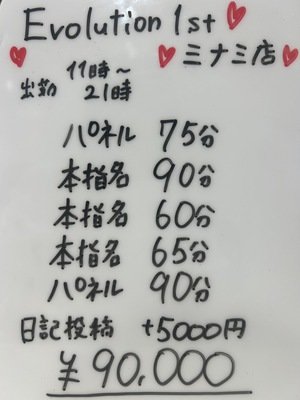 Evolution 1st
ミナミ店
11時～
出勤 21時
パネル 75分
本指名 90分
本指名 60分
本指名 65分
パネル 90分
日記投稿 +5000円
¥90,000